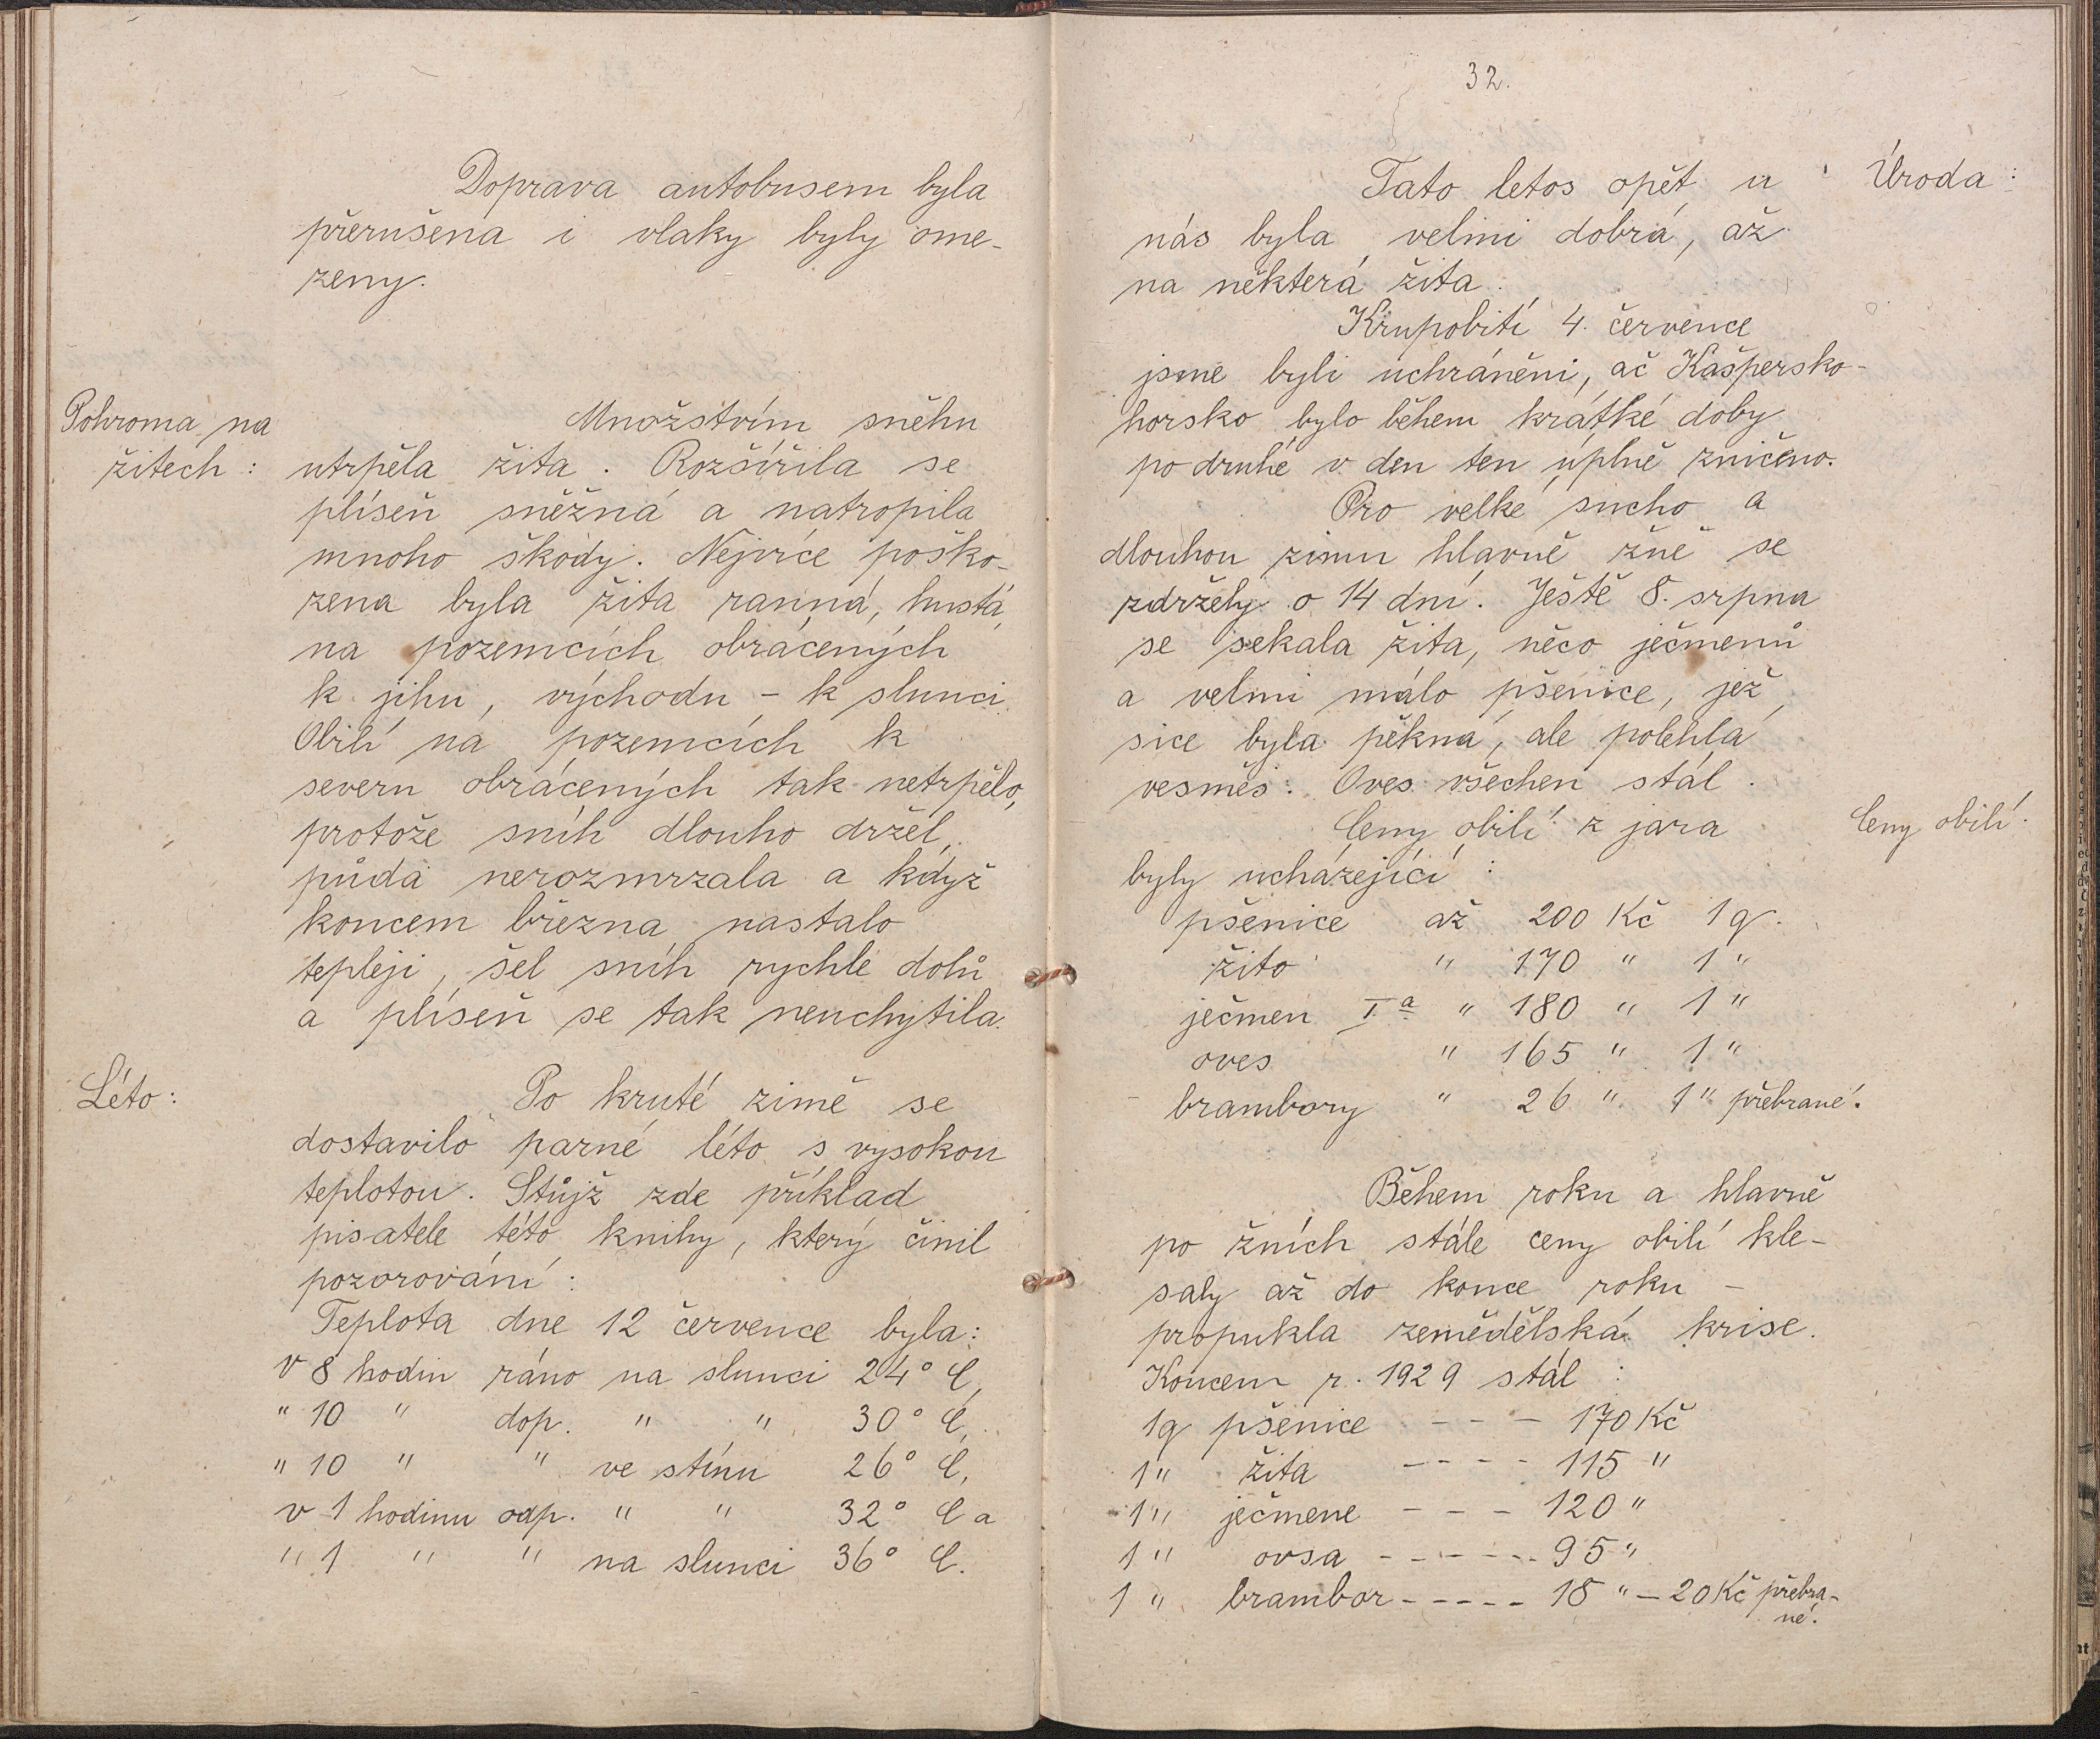 Doprava autobusem byla
přerušena i vlaky byly ome-
zeny.
Pohroma na
žitech:
Množstvím sněhu
utrpěla žita. Rozšířila se
plíseň sněžná a natropila
mnoho škody. Nejvíce poško-
zena byla žita ranná, hustá,
na pozemcích obrácených
k jihu, východu - k slunci.
Obilí na pozemcích k
severu obrácených tak netrpělo,
protože sníh dlouho držel,
půda nerozmrzala a když
koncem března nastalo
tepleji, šel sníh rychle dolů
a plíseň se tak neuchytila.
Léto:
Po kruté zimě se
dostavilo parné léto s vysokou
teplotou. Stůjž zde příklad
pisatele této knihy, který činil
pozorování:
Teplota dne 12 července byla:
v 8 hodin ráno na slunci 24° C,
" 10 " dop. " " 30° C,
" 10 " " ve stínu 26° C,
v 1 hodinu odp. " " 32° C a
" 1 " " na slunci 36° C.
32.
Úroda:
Tato letos opět u
nás byla velmi dobrá, až
na některá žita.
Krupobití 4. července
jsme byli uchráněni, ač Kašpersko-
horsko bylo během krátké doby
po druhé v den ten úplně zničeno.
Pro velké sucho a
dlouhou zimu hlavně žně se
zdržely o 14 dní. Ještě 8. srpna
se sekala žita, něco ječmenů
a velmi málo pšenice, jež
sice byla pěkná, ale polehlá
vesměs. Oves všechen stál.
Ceny obilí.
Ceny obilí z jara
byly ucházející:
pšenice až 200 Kč 1 q.
žito " 170 " 1 "
ječmen Iª " 180 " 1 "
oves " 165 " 1 "
brambory " 26 " 1 " přebrané.
Během roku a hlavně
po žních stále ceny obilí kle-
saly až do konce roku -
propukla zemědělská krise.
Koncem r. 1929 stál:
1q pšenice - - - 170 Kč
1 " žita - - - - 115 "
1 " ječmene - - - 120 "
1 " ovsa - - - - - - 95 "
1 " brambor - - - - - 18 " - 20 Kč přebra-
né.